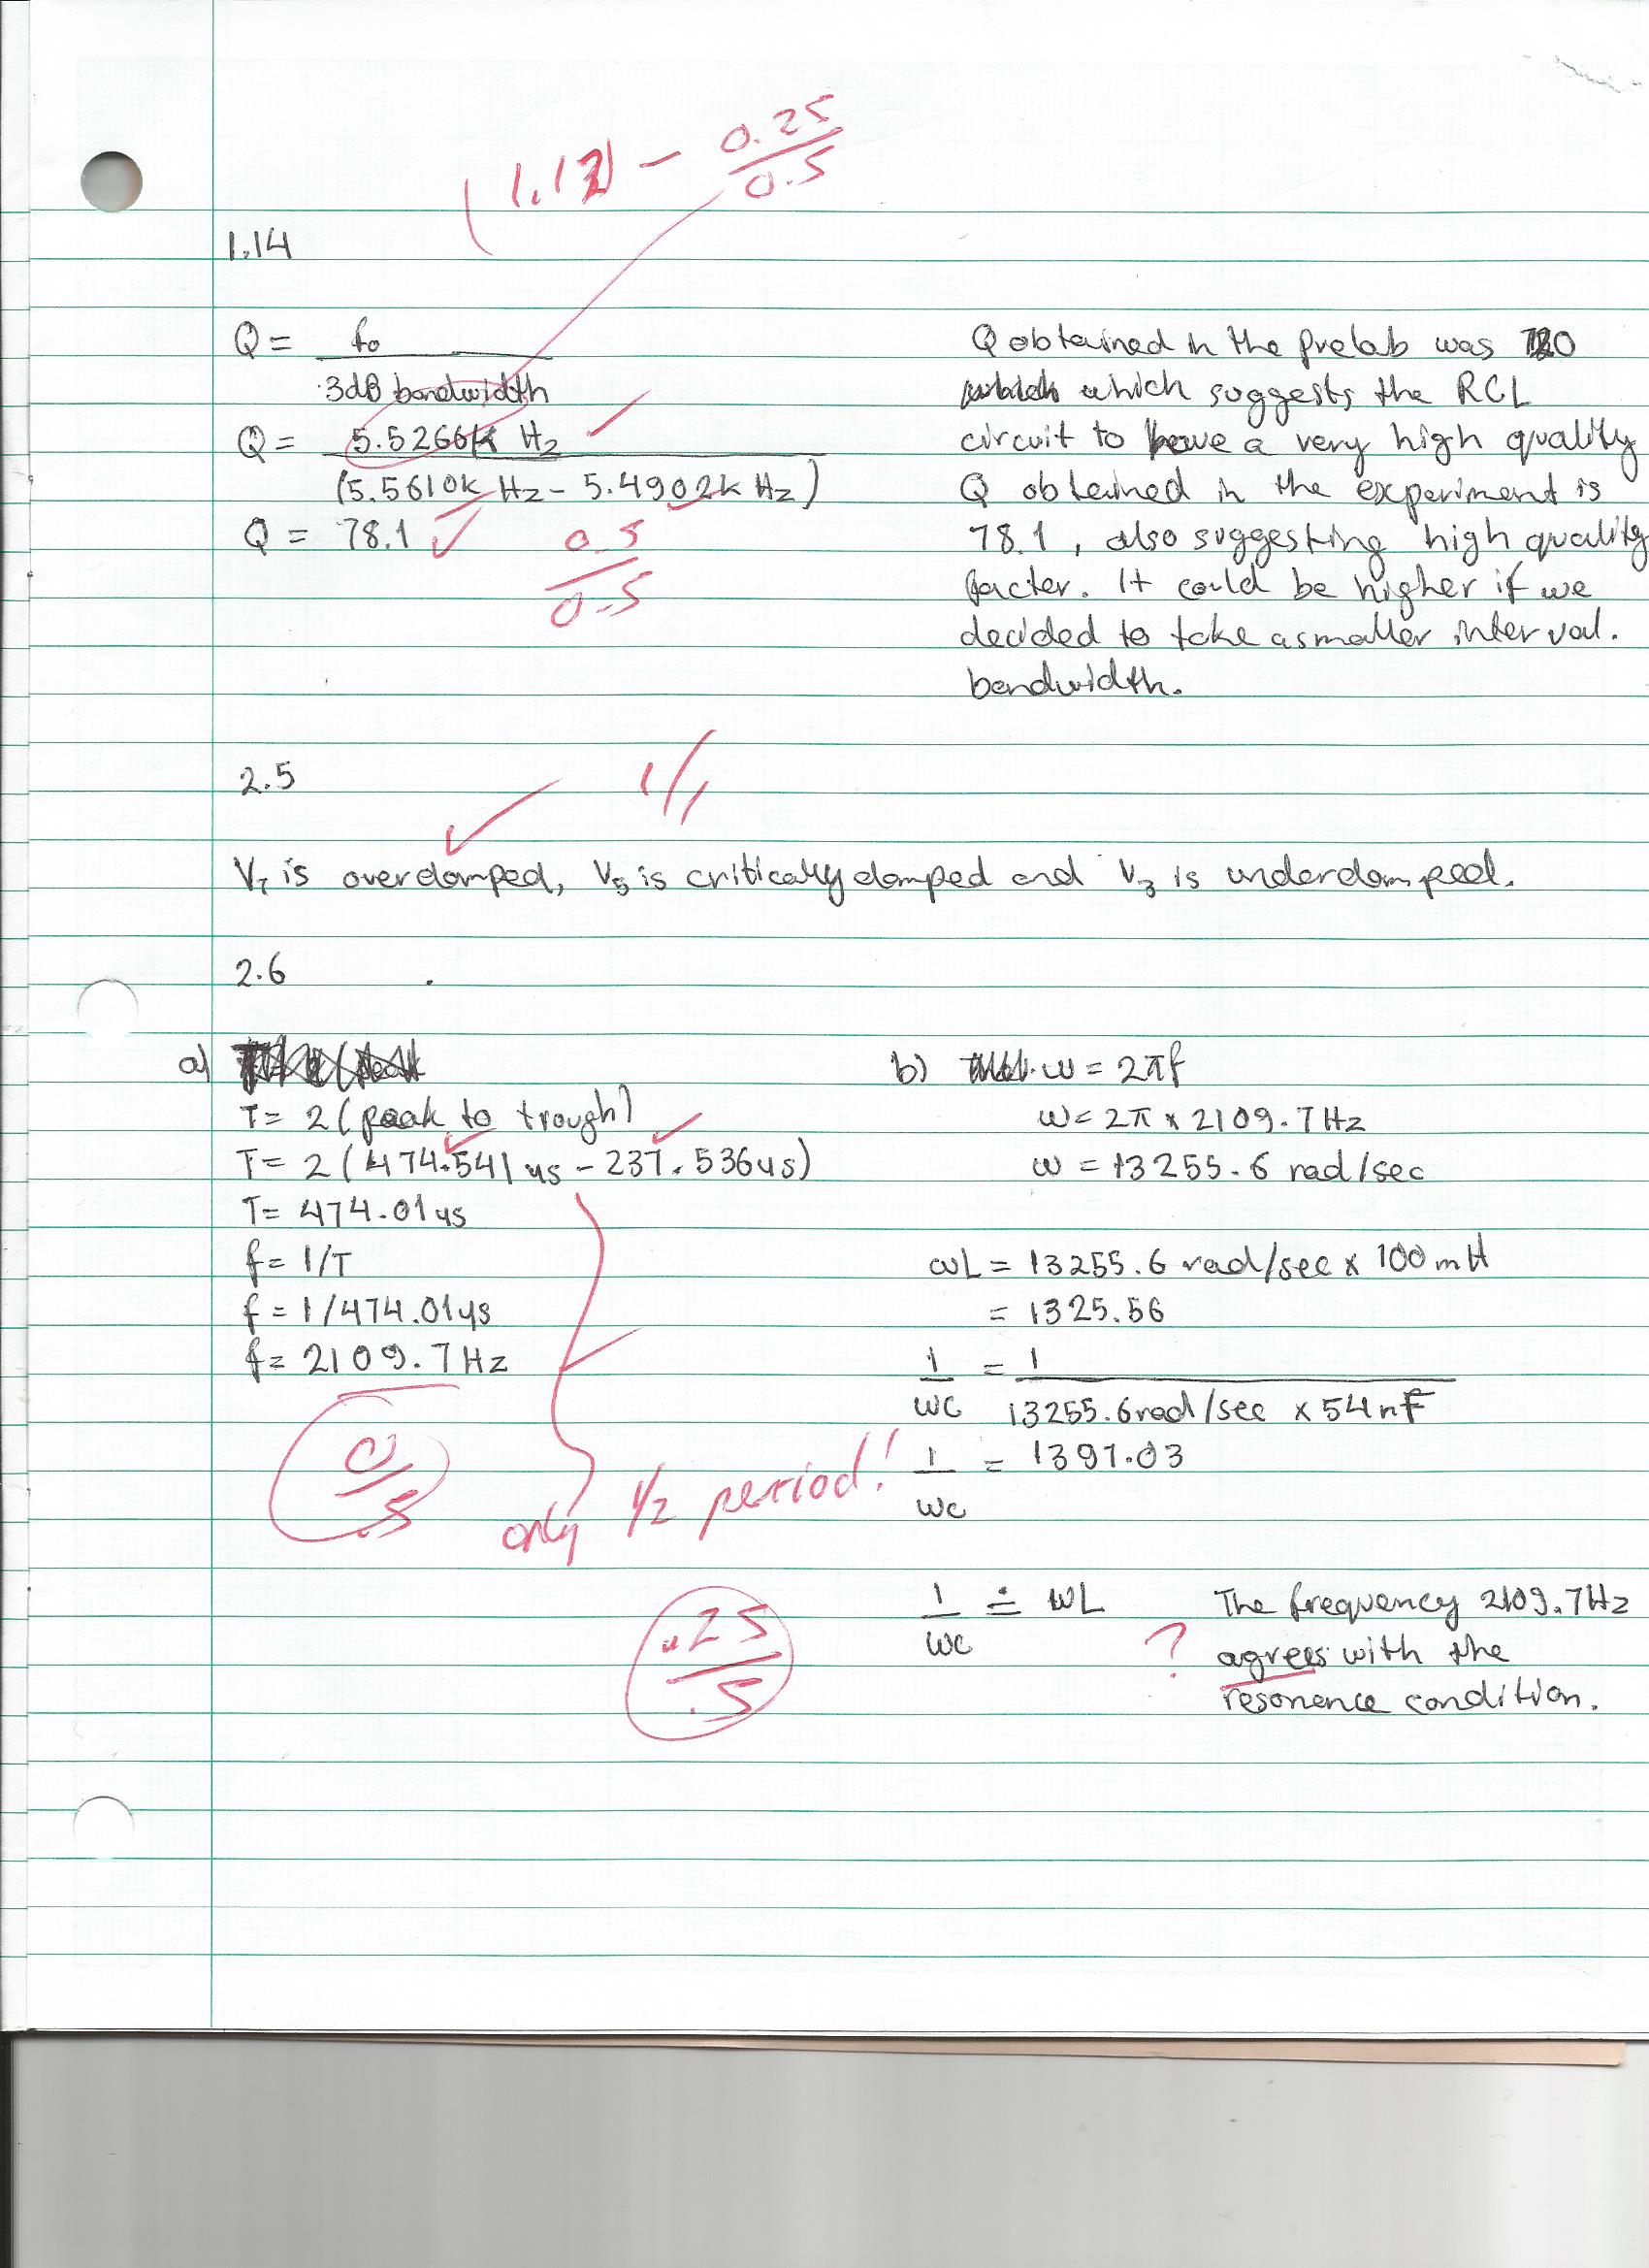 (1.12) - 0.25
0.5
1.14
Q = fo
3dB bandwidth
Q = 5.5266k Hz
(5.5610k Hz - 5.4902k Hz)
Q = 78.1
0.5
0.5
Q obtained in the prelab was
which suggests the RCL
circuit to have a very high quality
Q obtained in the experiment is
78.1, also suggesting high quality
facter. It could be higher if we
decided to take a smaller interval.
bandwidth.
2.5
1/1
V7 is overdamped, V5 is critically damped and V3 is underdamped.
2.6
a)
T= 2 (peak to trough)
T= 2 (474.541us - 237.536us)
T= 474.01us
f = 1/T
f = 1/474.01us
f= 2109.7Hz
0
.5
only 1/2 period!
b) w = 2πf
w = 2π x 2109.7Hz
w = 13255.6 rad/sec
wL = 13255.6 rad/sec x 100mH
= 1325.56
1 = 1
wc 13255.6rad/sec x 54nF
1 = 1397.03
wc
.25
.5
1 ≐ wL
wc
? The frequency 2109.7Hz
agrees with the
resonence condition.